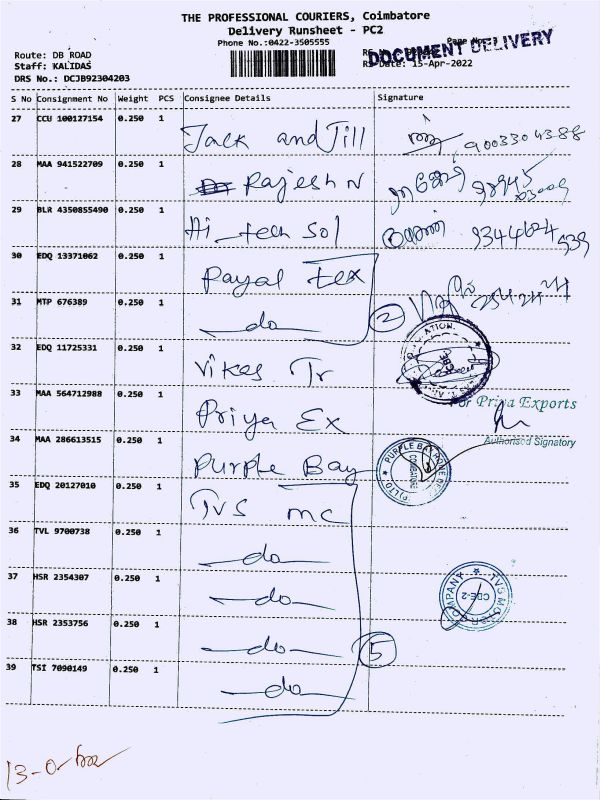 THE PROFESSIONAL COURIERS, Coimbatore
Delivery Runsheet - PC2
Phone No.:0422-3505555
DOCUMENT DELIVERY
Route: DB ROAD
Staff: KALIDAS
Date: 15-Apr-2022
DRS No.: DCJB92304203
S No Consignment No Weight PCS Consignee Details Signature
27 CCU 100127154 0.250 1 Jack and Jill 9003304388
28 MAA 941522709 0.250 1 Rajesh N
29 BLR 4350855490 0.250 1 Hi_tech Sol 9344624539
30 EDQ 13371062 0.250 1 Payal tex
31 MTP 676389 0.250 1 do 2
32 EDQ 11725331 0.250 1 Vikas Tr
33 MAA 564712988 0.250 1 Priya Ex For Priya Exports
Authorised Signatory
34 MAA 286613515 0.250 1 Purple Bay PURPLE BAY
35 EDQ 20127010 0.250 1 TVS mc
36 TVL 9700738 0.250 1 do
37 HSR 2354307 0.250 1 do TVS MOTOR COMPANY CBE-2
38 HSR 2353756 0.250 1 do 5
39 TSI 7090149 0.250 1 do